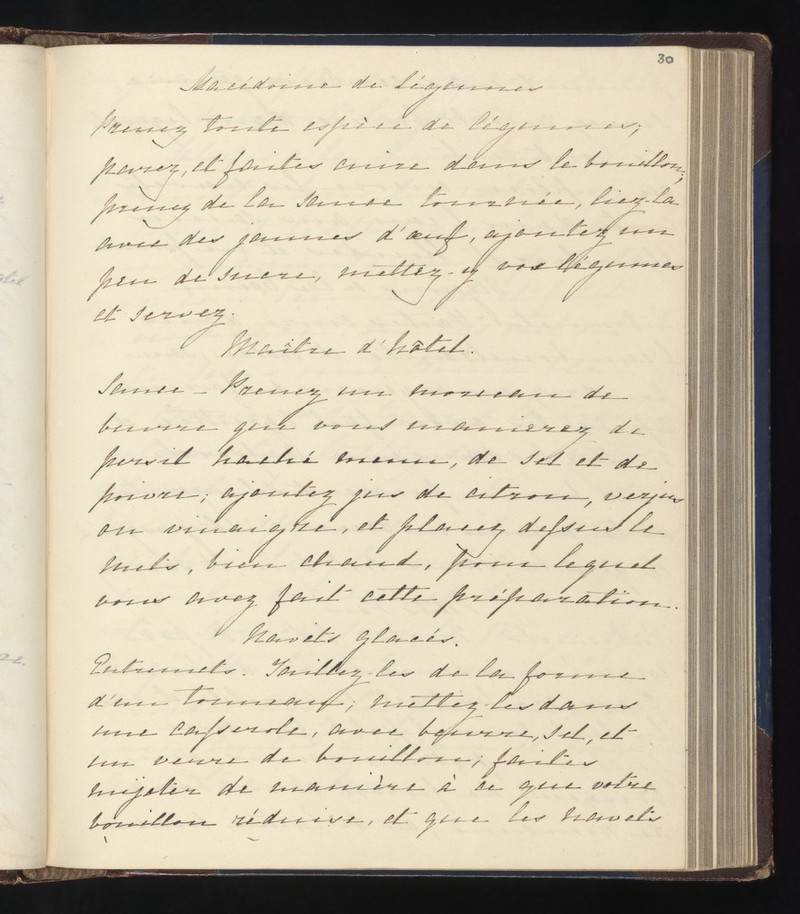 30
Macédoine de légumes
Prenez toute espèce de légumes;
parez, et faites cuire dans le bouillon;
prenez de la sauce tournée, liez-la
avec des jaunes d'œuf, ajoutez un
peu de sucre, mettez-y vos légumes
et servez.
Maître d'hôtel.
Sauce – Prenez un morceau de
beurre que vous manierez de
persil haché menu, de sel et de
poivre; ajoutez jus de citron, verjus
ou vinaigre, et placez dessus le
mets, bien chaud, pour lequel
vous avez fait cette préparation.
Navets glacés.
Entremets. Taillez-les de la forme
d'un tonneau; mettez-les dans
une casserole, avec beurre, sel, et
un verre de bouillon; faites
mijoter de manière à ce que votre
bouillon réduise, et que les navets